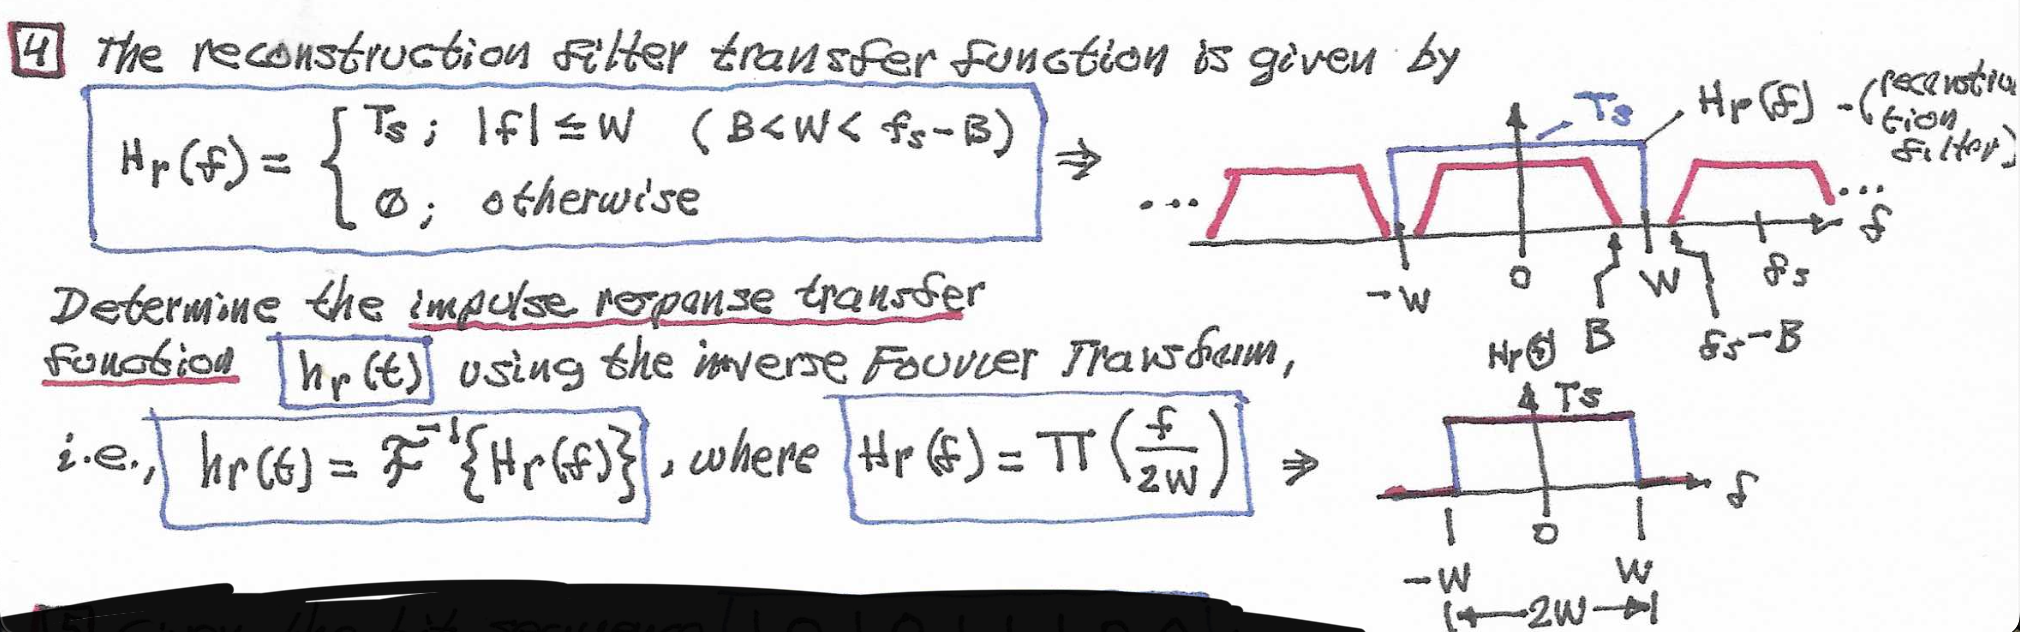 4 The reconstruction filter transfer function is given by
Hr(f) = { Ts; |f| ≤ W (B<W< fs-B)
0; otherwise
⇒
Ts
Hr(f) - (reconstruc
tion
filter)
... ...
f
-W 0 B W fs-B fs
Determine the impulse response transfer
function hr(t) using the inverse Fourier Transform,
i.e., hr(t) = F⁻¹{Hr(f)}, where Hr(f) = Π(f/2W) ⇒
Hr(f)
Ts
f
-W 0 W
2W